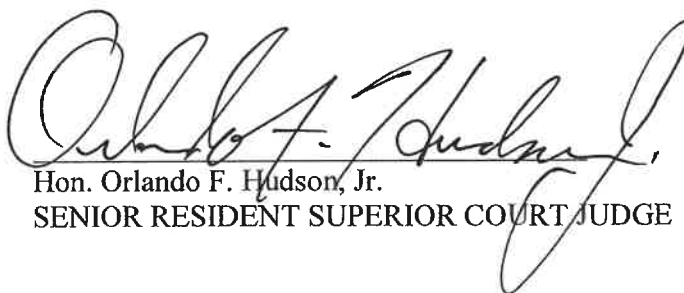 Orlando F. Hudson, Jr.
Hon. Orlando F. Hudson, Jr.
SENIOR RESIDENT SUPERIOR COURT JUDGE